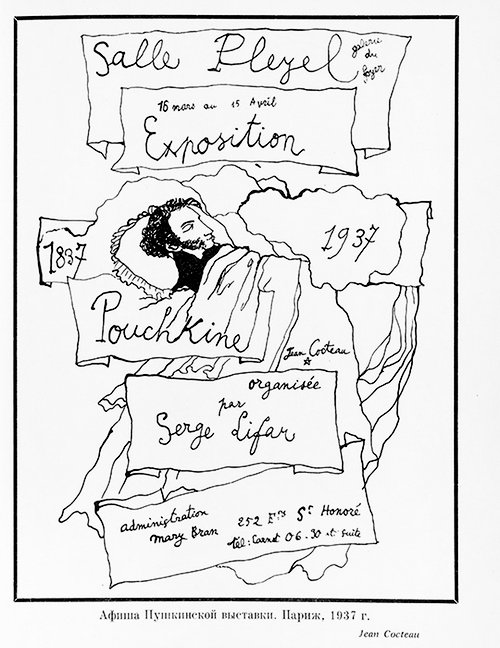 Salle Pleyel
galerie
du
foyer
16 mars au 15 Avril
Exposition
1837
1937
Pouchkine
Jean Cocteau
organisée
par
Serge Lifar
administration
Mary Bran
252 Fg St Honoré
tél: Carnot 06.30 et suite
Афиша Пушкинской выставки. Париж, 1937 г.
Jean Cocteau